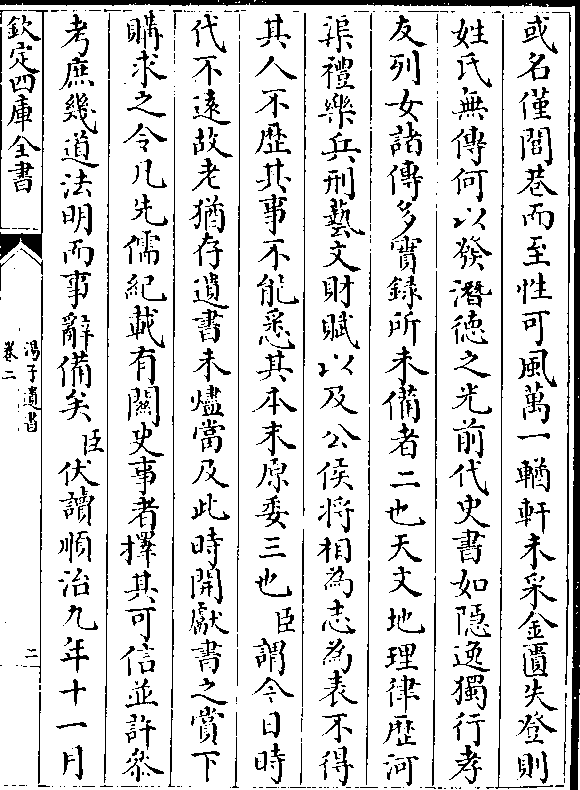 或名僅閭巷而至性可風萬一輶軒未采金匱失登則
姓氏無傳何以發潛德之光前代史書如隠逸獨行孝
友列女諸傳多實録所未備者二也天文地理律歴河
渠禮樂兵刑藝文財賦以及公侯將相為志為表不得
其人不歴其事不能悉其本末原委三也臣謂今日時
代不遠故老猶存遺書未燼當及此時開獻書之賞下
購求之令凡先儒紀載有關史事者擇其可信並許叅
考庶幾道法明而事辭備矣臣伏讀順治九年十一月
欽定四庫全書
湯子遺書
卷二
二